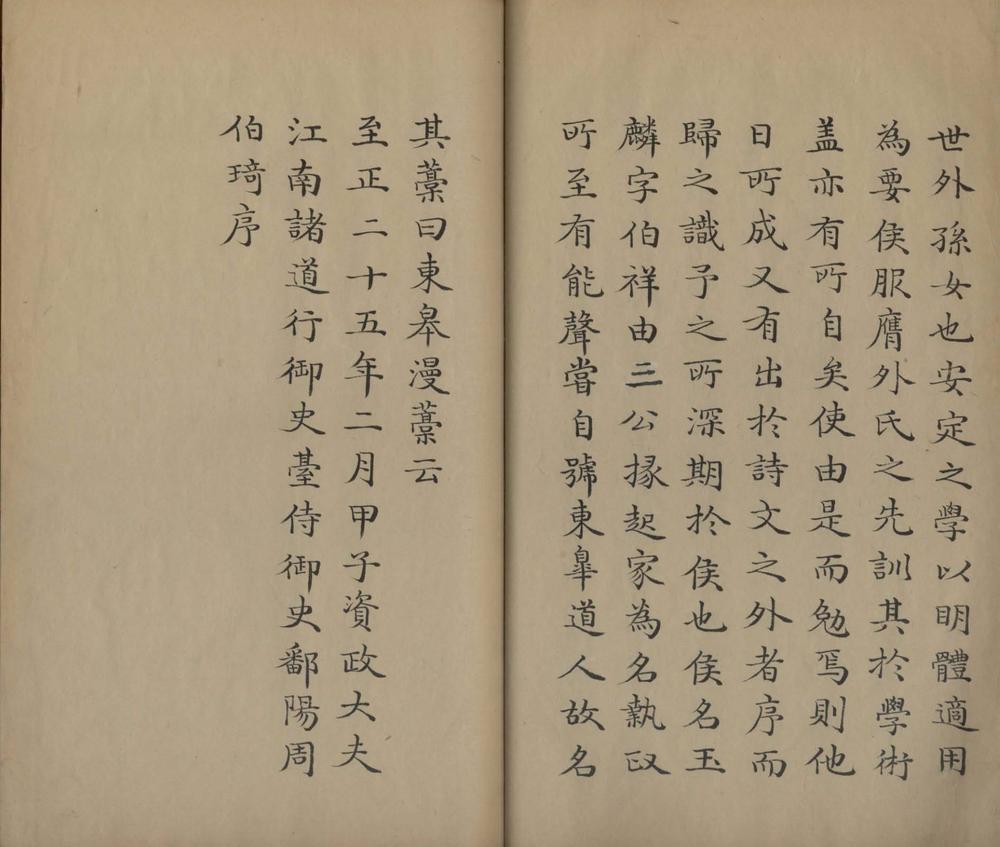 世外孫女也安定之學以明體適用
為要侯服膺外氏之先訓其於學術
盖亦有所自矣使由是而勉焉則他
日所成又有出於詩文之外者序而
歸之識予之所深期於侯也侯名玉
麟字伯祥由三公掾起家為名執政
所至有能聲嘗自號東皐道人故名
其藳曰東皋漫藳云
至正二十五年二月甲子資政大夫
江南諸道行御史臺侍御史鄱陽周
伯琦序